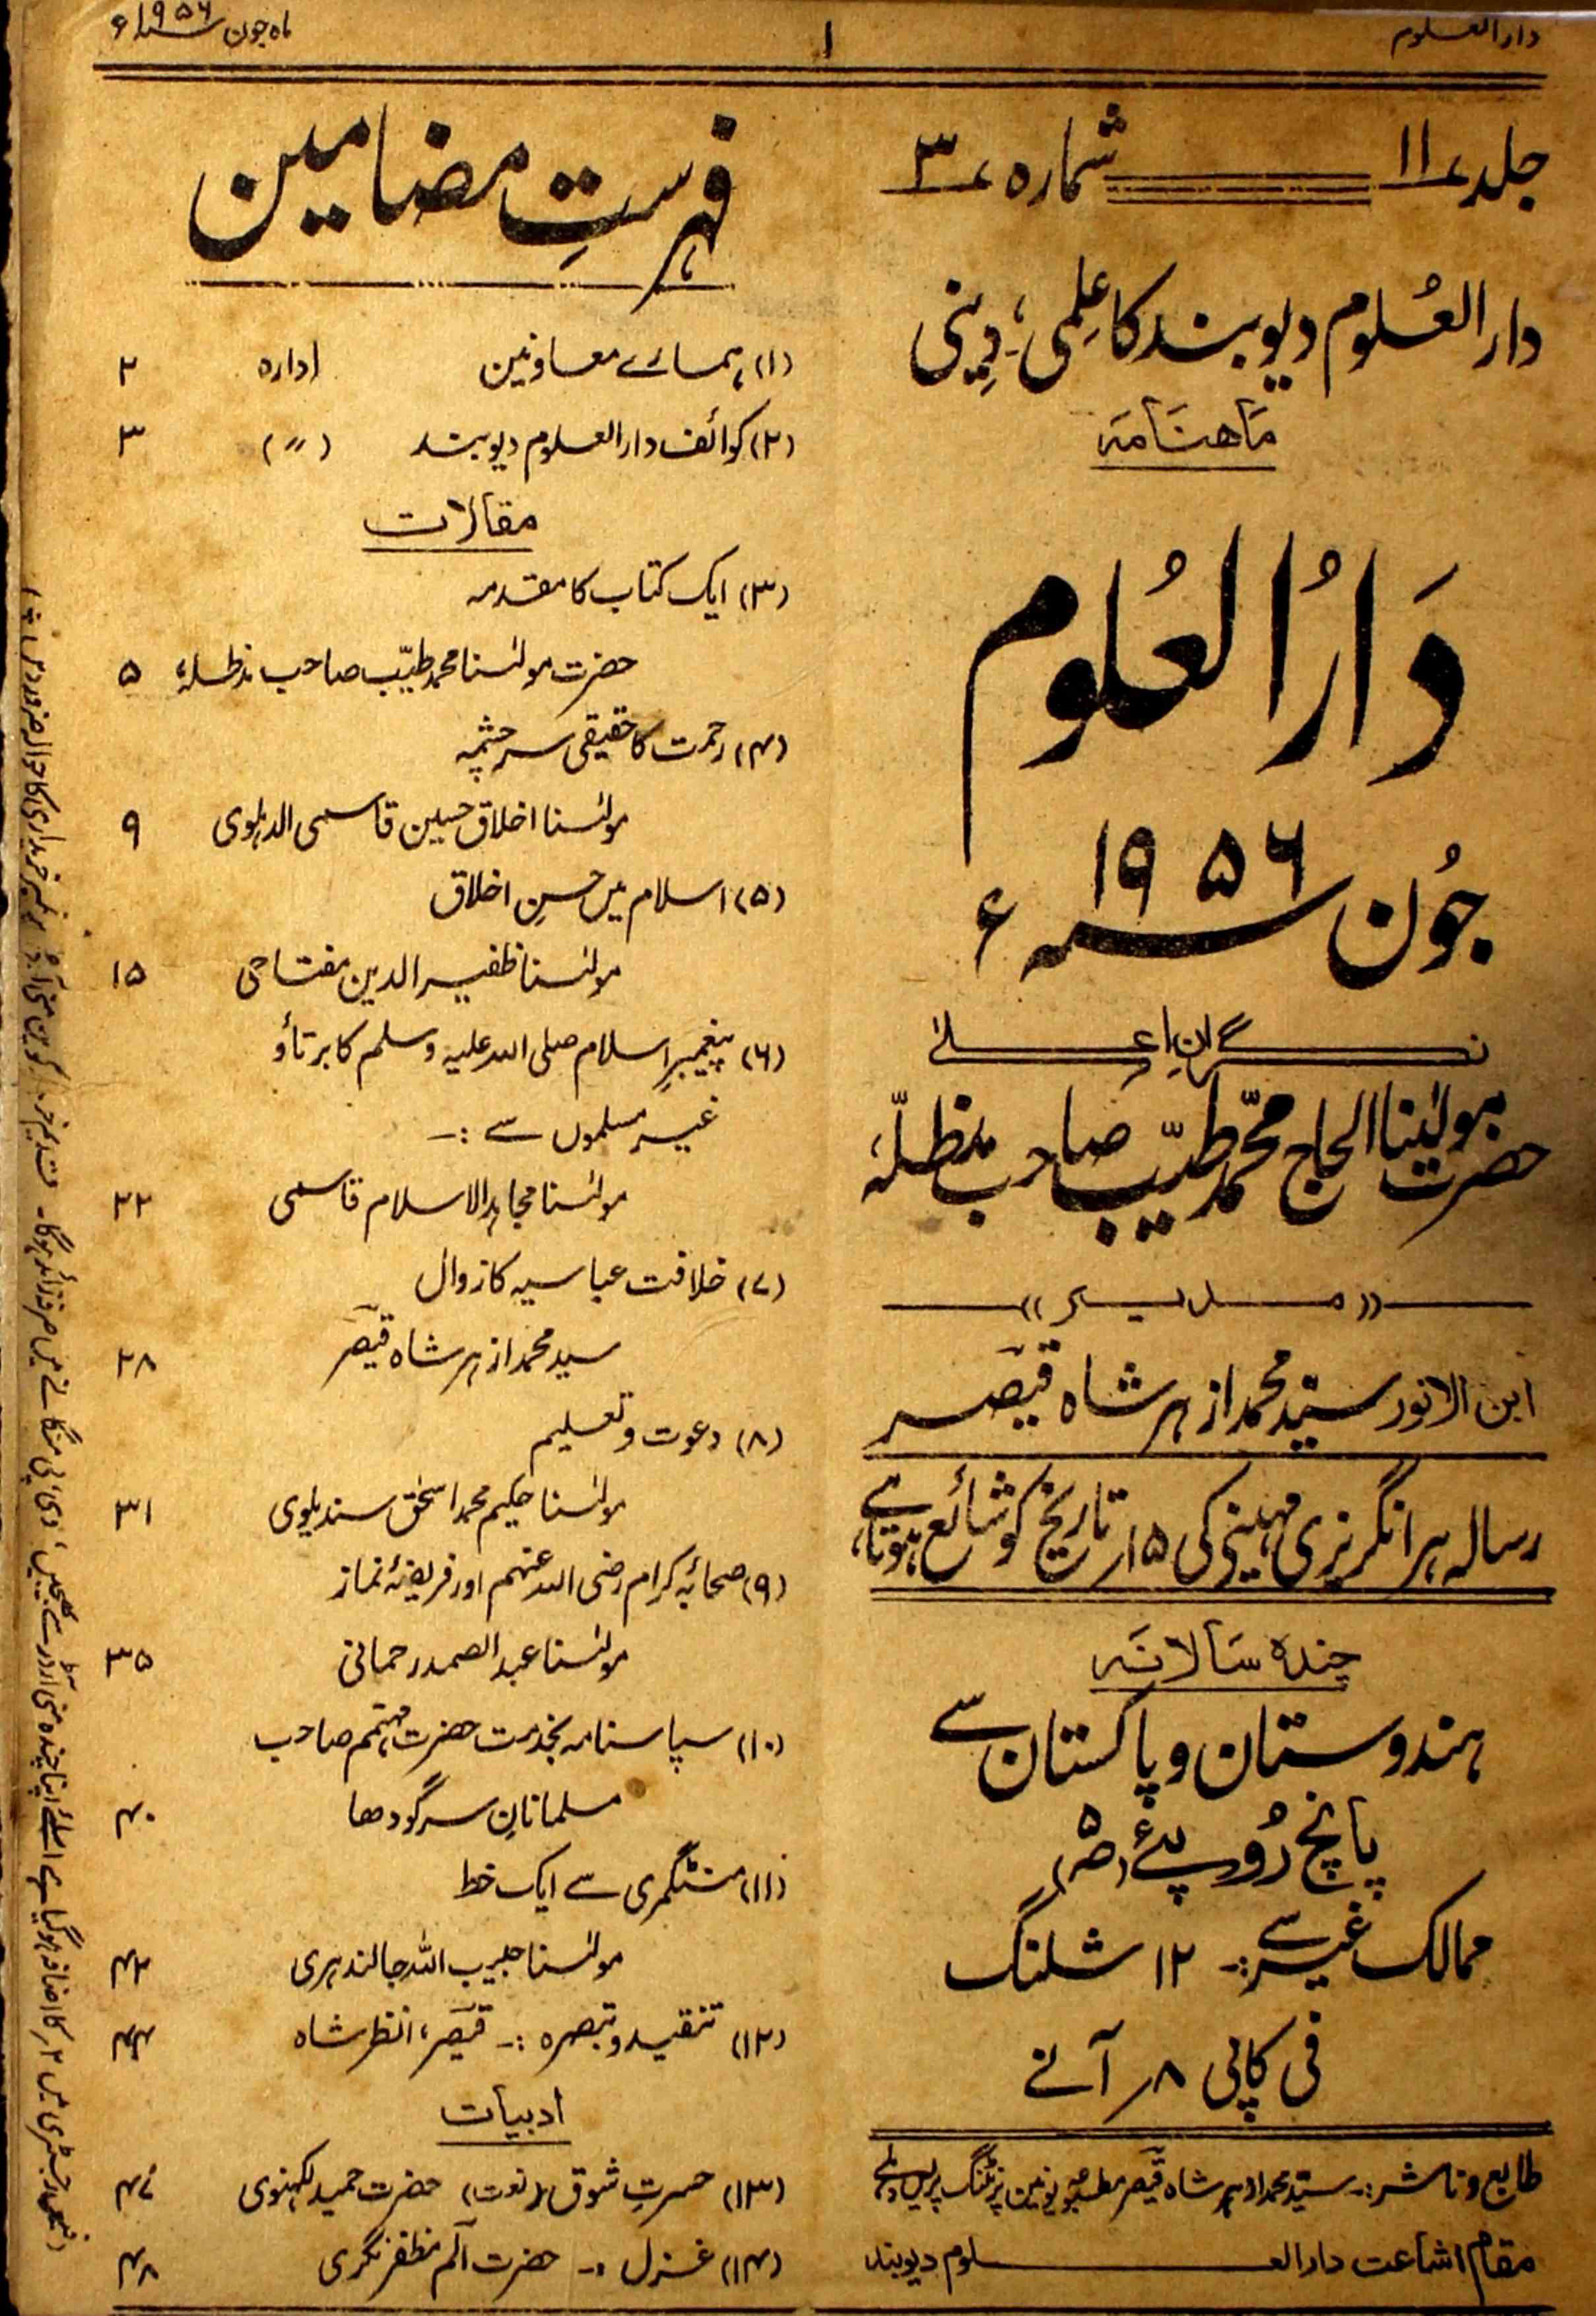 دارالعلوم
۱
ماہ جون ۱۹۵۶ء
جلد ۱۱ شمارہ ۳
دارالعُلوم دیوبند کا عِلمِی، دِینی
مَاھنَامَہ
دَارُالعُلوم
جُون ۱۹۵۶ سنہ ء
نگرانِ اعلیٰ
حضرت مولینا الحاج محمّد طیّب صاحب مدظلہٗ
((مدیر))
ابن الانور سیّد محمد ازہر شاہ قیصر
رسالہ ہر انگریزی مہینے کی ۱۵ر تاریخ کو شائع ہوتا ہے
چندہ سَالانَہ
ہندوستان و پاکستان سے
پانچ رُوپئے (۵)
ممالک غیر سے :- ۱۲ شلنگ
فی کاپی ۸ر آنے
طابع و ناشر :- سیّد محمد ازہر شاہ قیصر مطبوعہ یونین پرنٹنگ پریس دہلی
مقام اشاعت دارالعلوم دیوبند
فہرستِ مضامین
(۱) ہمارے معاونین ادارہ ۲
(۲) کوائف دارالعلوم دیوبند (〃) ۳
مقالات
(۳) ایک کتاب کا مقدمہ
حضرت مولٰنا محمد طیّب صاحب مدظلہٗ ۵
(۴) رحمت کا حقیقی سرچشمہ
مولٰنا اخلاق حسین قاسمی الدہلوی ۹
(۵) اسلام میں حسنِ اخلاق
مولٰنا ظفیر الدین مفتاحی ۱۵
(۶) پیغمبرِ اسلام صلی اللہ علیہ وسلم کا برتاؤ
غیر مسلموں سے :-
مولٰنا مجاہد الاسلام قاسمی ۲۲
(۷) خلافت عباسیہ کا زوال
سید محمد ازہر شاہ قیصر ۲۸
(۸) دعوت و تعلیم
مولٰنا حکیم محمد اسحٰق سندیلوی ۳۱
(۹) صحابۂ کرام رضی اللہ عنہم اور فریضۂ نماز
مولٰنا عبد الصمد رحمانی ۳۵
(۱۰) سپاسنامہ بخدمت حضرت مہتمم صاحب
مسلمانانِ سرگودھا ۴۰
(۱۱) منٹگمری سے ایک خط
مولٰنا حبیب اللہ جالندہری ۴۲
(۱۲) تنقید و تبصرہ :- قیصر، انظر شاہ ۴۴
ادبیات
(۱۳) حسرتِ شوق (نعت) حضرت حمید لکہنوی ۴۷
(۱۴) غزل :- حضرت الم مظفر نگری ۴۸
رجسٹری میں ۲ر کا اضافہ ہوگیا ہے اسلئے اپنا چندہ منی آرڈر سے بھیجیں، وی پی منگانے میں صرفہ زائد ہوگا۔ خریدار کوپن منی آرڈر پر نمبر خریداری کا حوالہ ضرور دیں